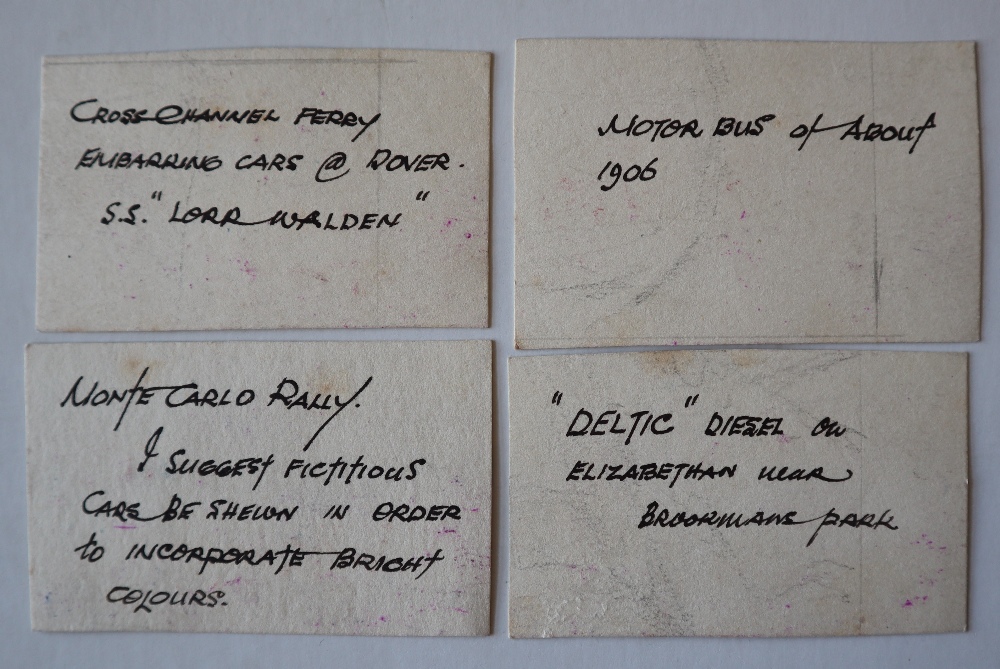 CROSS CHANNEL FERRY
EMBARRING CARS @ DOVER.
S.S. "LORR WALDEN"
MOTOR BUS of ABOUT
1906
MONTE CARLO RALLY.
I SUGGEST FICTITIOUS
CARS BE SHEWN IN ORDER
to INCORPORATE BRIGHT
COLOURS.
"DELTIC" DIESEL ON
ELIZABETHAN near
BROORMANS PARK